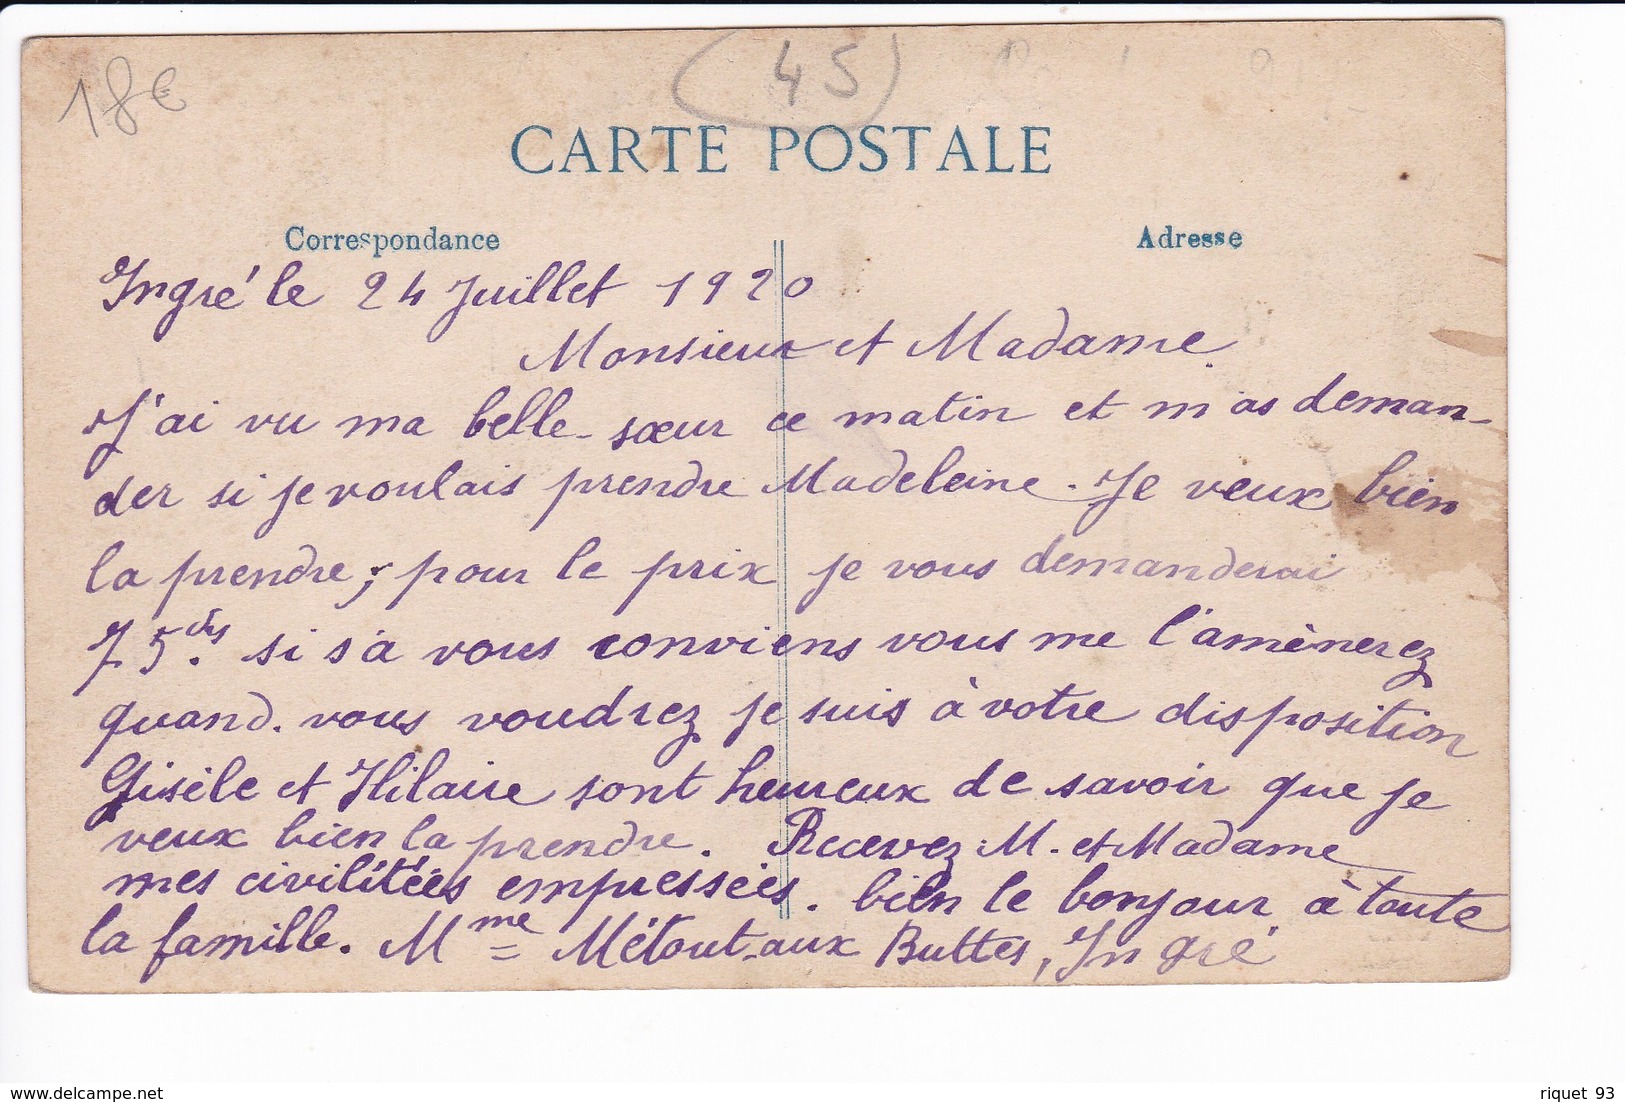 18€
(45)
CARTE POSTALE
Correspondance
Adresse
Ingré le 24 Juillet 1920
Monsieur et Madame
J'ai vu ma belle-sœur ce matin et m'as deman-
der si je voulais prendre Madeleine. Je veux bien
la prendre, pour le prix je vous demanderai
75. si s'a vous conviens vous me l'amènerez
quand. vous voudrez je suis à votre disposition
Gisèle et Hilaire sont heureux de savoir que je
veux bien la prendre. Recevez M. et Madame
mes civilitées empressées. bien le bonjour à toute
la famille. Mme Métout aux Buttes, Ingré
riquet 93
www.delcampe.net